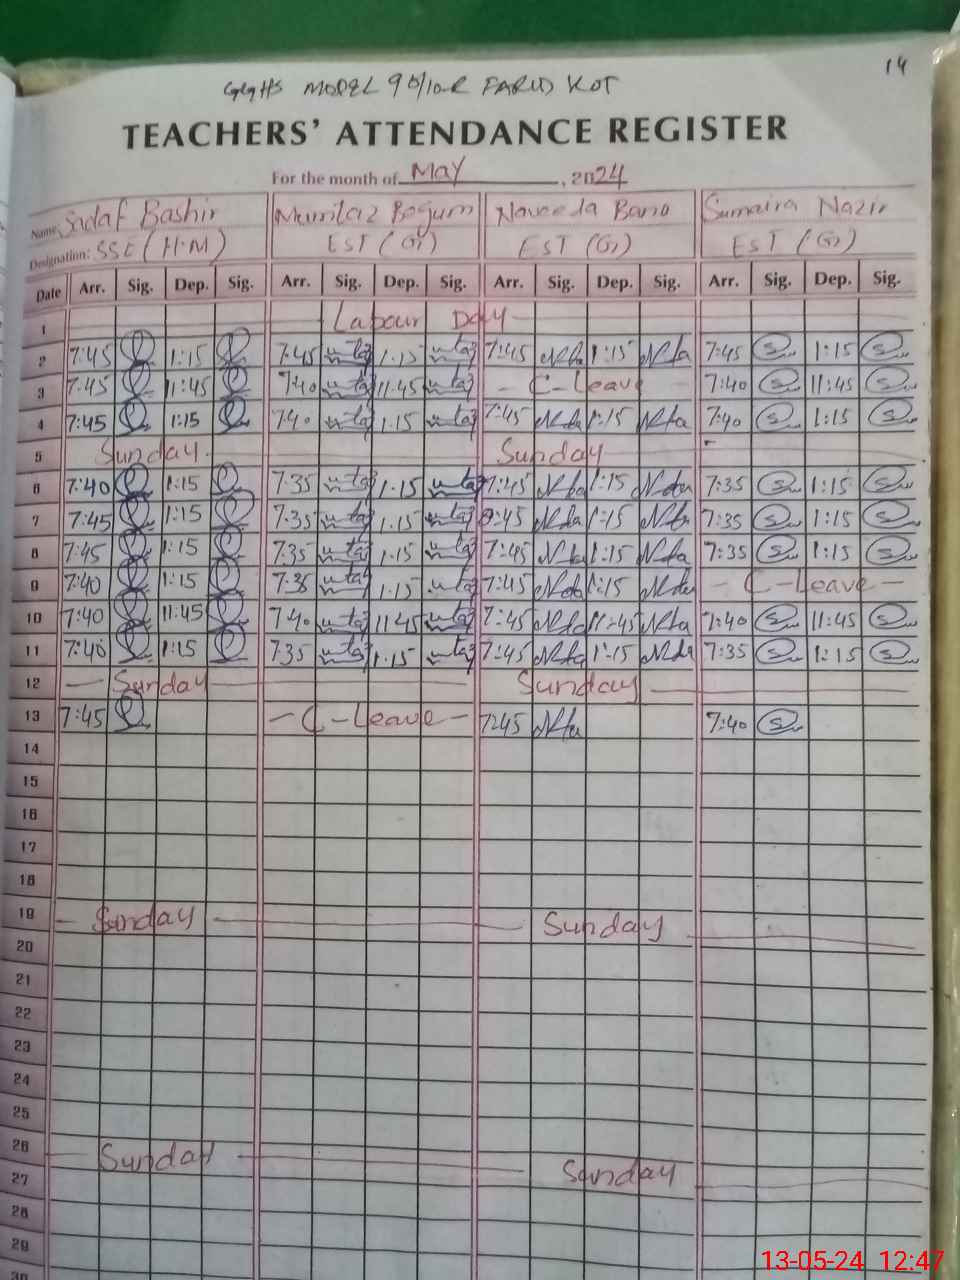 14
GGHS MODEL 90/10-R FARID KOT
TEACHERS' ATTENDANCE REGISTER
For the month of May, 2024
Name: Sadaf Bashir Mumtaz Begum Naveeda Bano Sumaira Nazir
Designation: SSE (H.M) EST (G) EST (G) EST (G)
Date Arr. Sig. Dep. Sig. Arr. Sig. Dep. Sig. Arr. Sig. Dep. Sig. Arr. Sig. Dep. Sig.
1 Labour Day
2 7:45 1:15 7:45 1:15 7:45 1:15 7:45 1:15
3 7:45 11:45 7:40 11:45 - C-Leave - 7:40 11:45
4 7:45 1:15 7:40 1:15 7:45 1:15 7:40 1:15
5 Sunday Sunday
6 7:40 1:15 7:35 1:15 7:45 1:15 7:35 1:15
7 7:45 1:15 7:35 1:15 7:45 1:15 7:35 1:15
8 7:45 1:15 7:35 1:15 7:45 1:15 7:35 1:15
9 7:40 1:15 7:35 1:15 7:45 1:15 - C-Leave -
10 7:40 11:45 7:40 11:45 7:45 11:45 7:40 11:45
11 7:40 1:15 7:35 1:15 7:45 1:15 7:35 1:15
12 Sunday Sunday
13 7:45 - C-Leave - 7:45 7:40
14
15
16
17
18
19 Sunday Sunday
20
21
22
23
24
25
26 Sunday Sunday
27
28
29
30
13-05-24 12:47